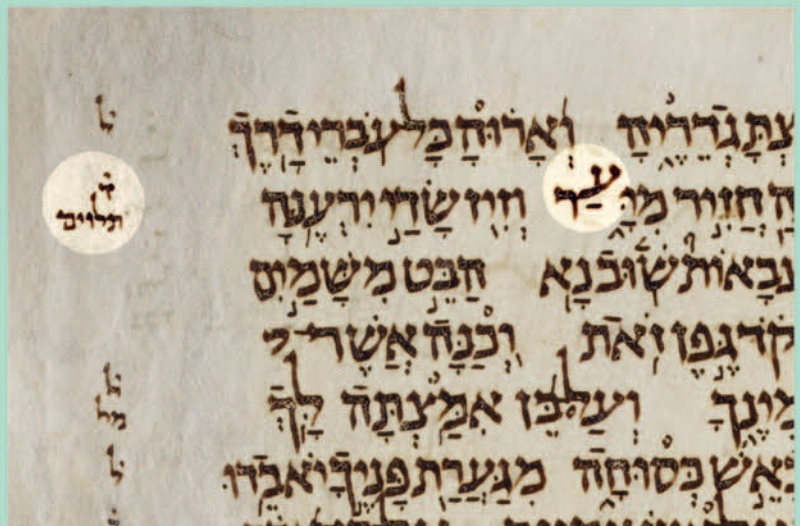 צְתָּ גְדֵרֶיהָ וְאָרוּהָ כָּל עֹבְרֵי דָרֶךְ ל
ה חֲזִיר מִיָּעַר וְזִיז שָׂדַי יִרְעֶנָּה ד
תלוים
צְבָאוֹת שׁוּב נָא הַבֵּט מִשָּׁמַיִם
קֹד גֶּפֶן זֹאת וְכַנָּה אֲשֶׁר
מִינֶךָ וְעַל בֵּן אִמַּצְתָּה לָּךְ ל
מל
בָאֵשׁ כְּסוּחָה מִגַּעֲרַת פָּנֶיךָ יֹאבֵדוּ ל